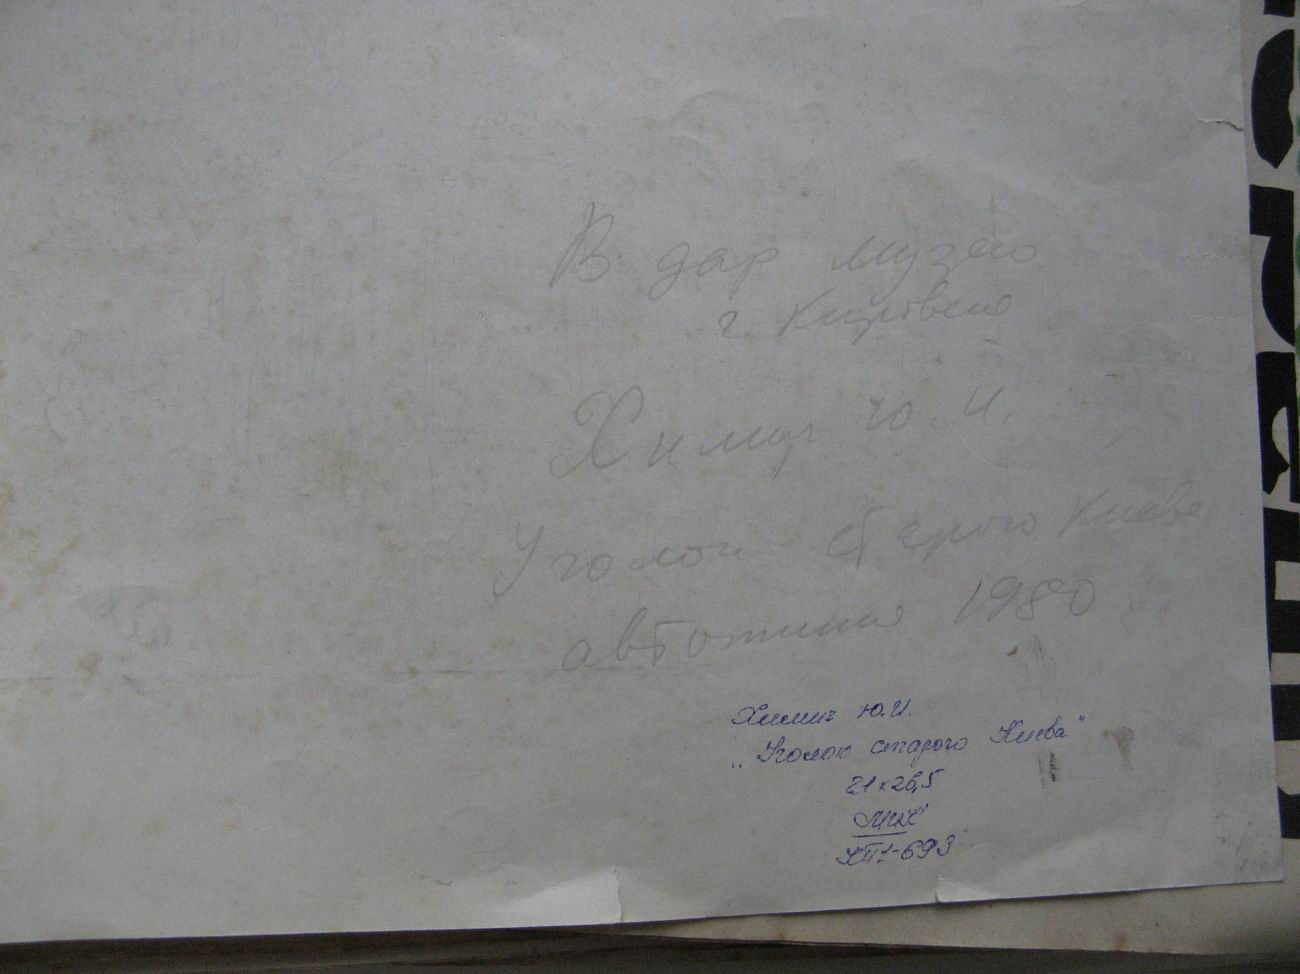 В дар музею
г.
Химич Ю. И.
Уголок старого Киева
автолиния 1980
Химич Ю.И.
„Уголок старого Киева"
21×26,5
КП-693